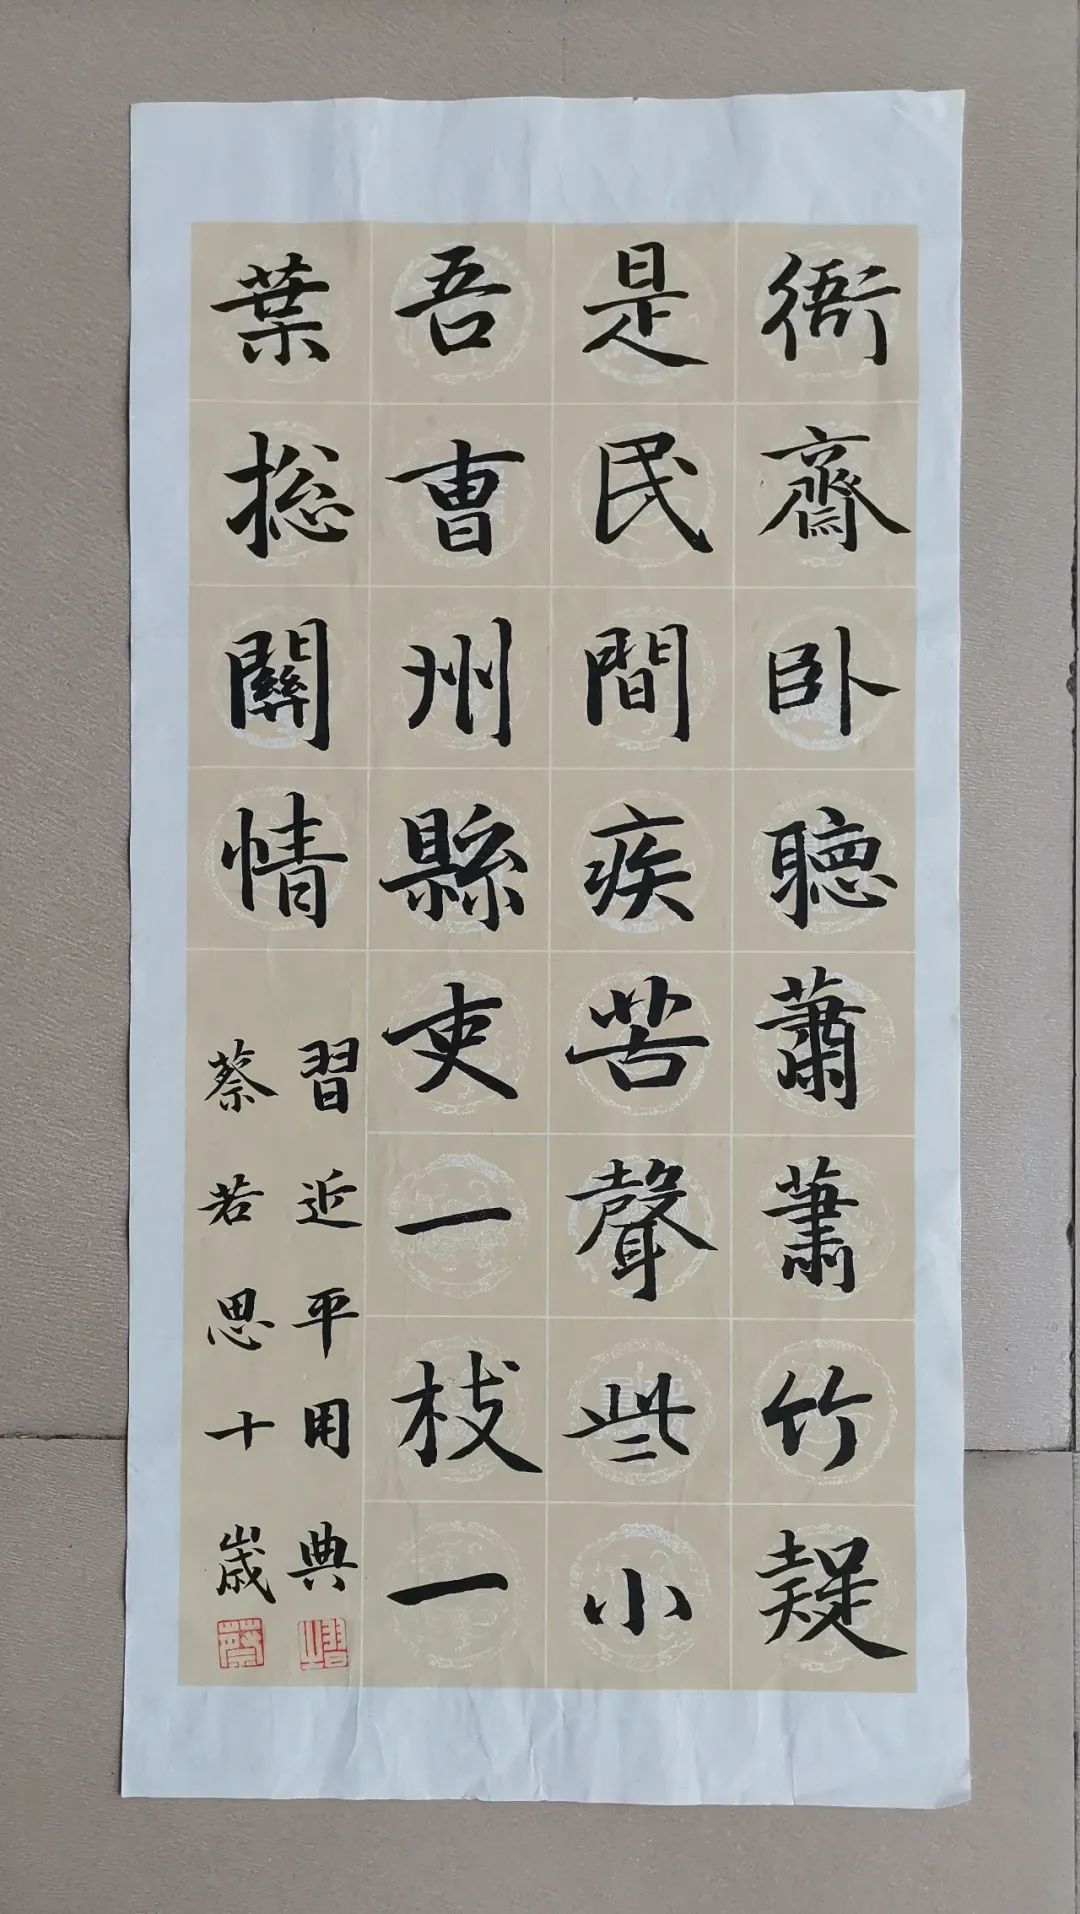 衙齋卧聽蕭蕭竹疑
是民間疾苦聲些小
吾曹州縣吏一枝一
葉揔關情
習近平用典
蔡若思十歲